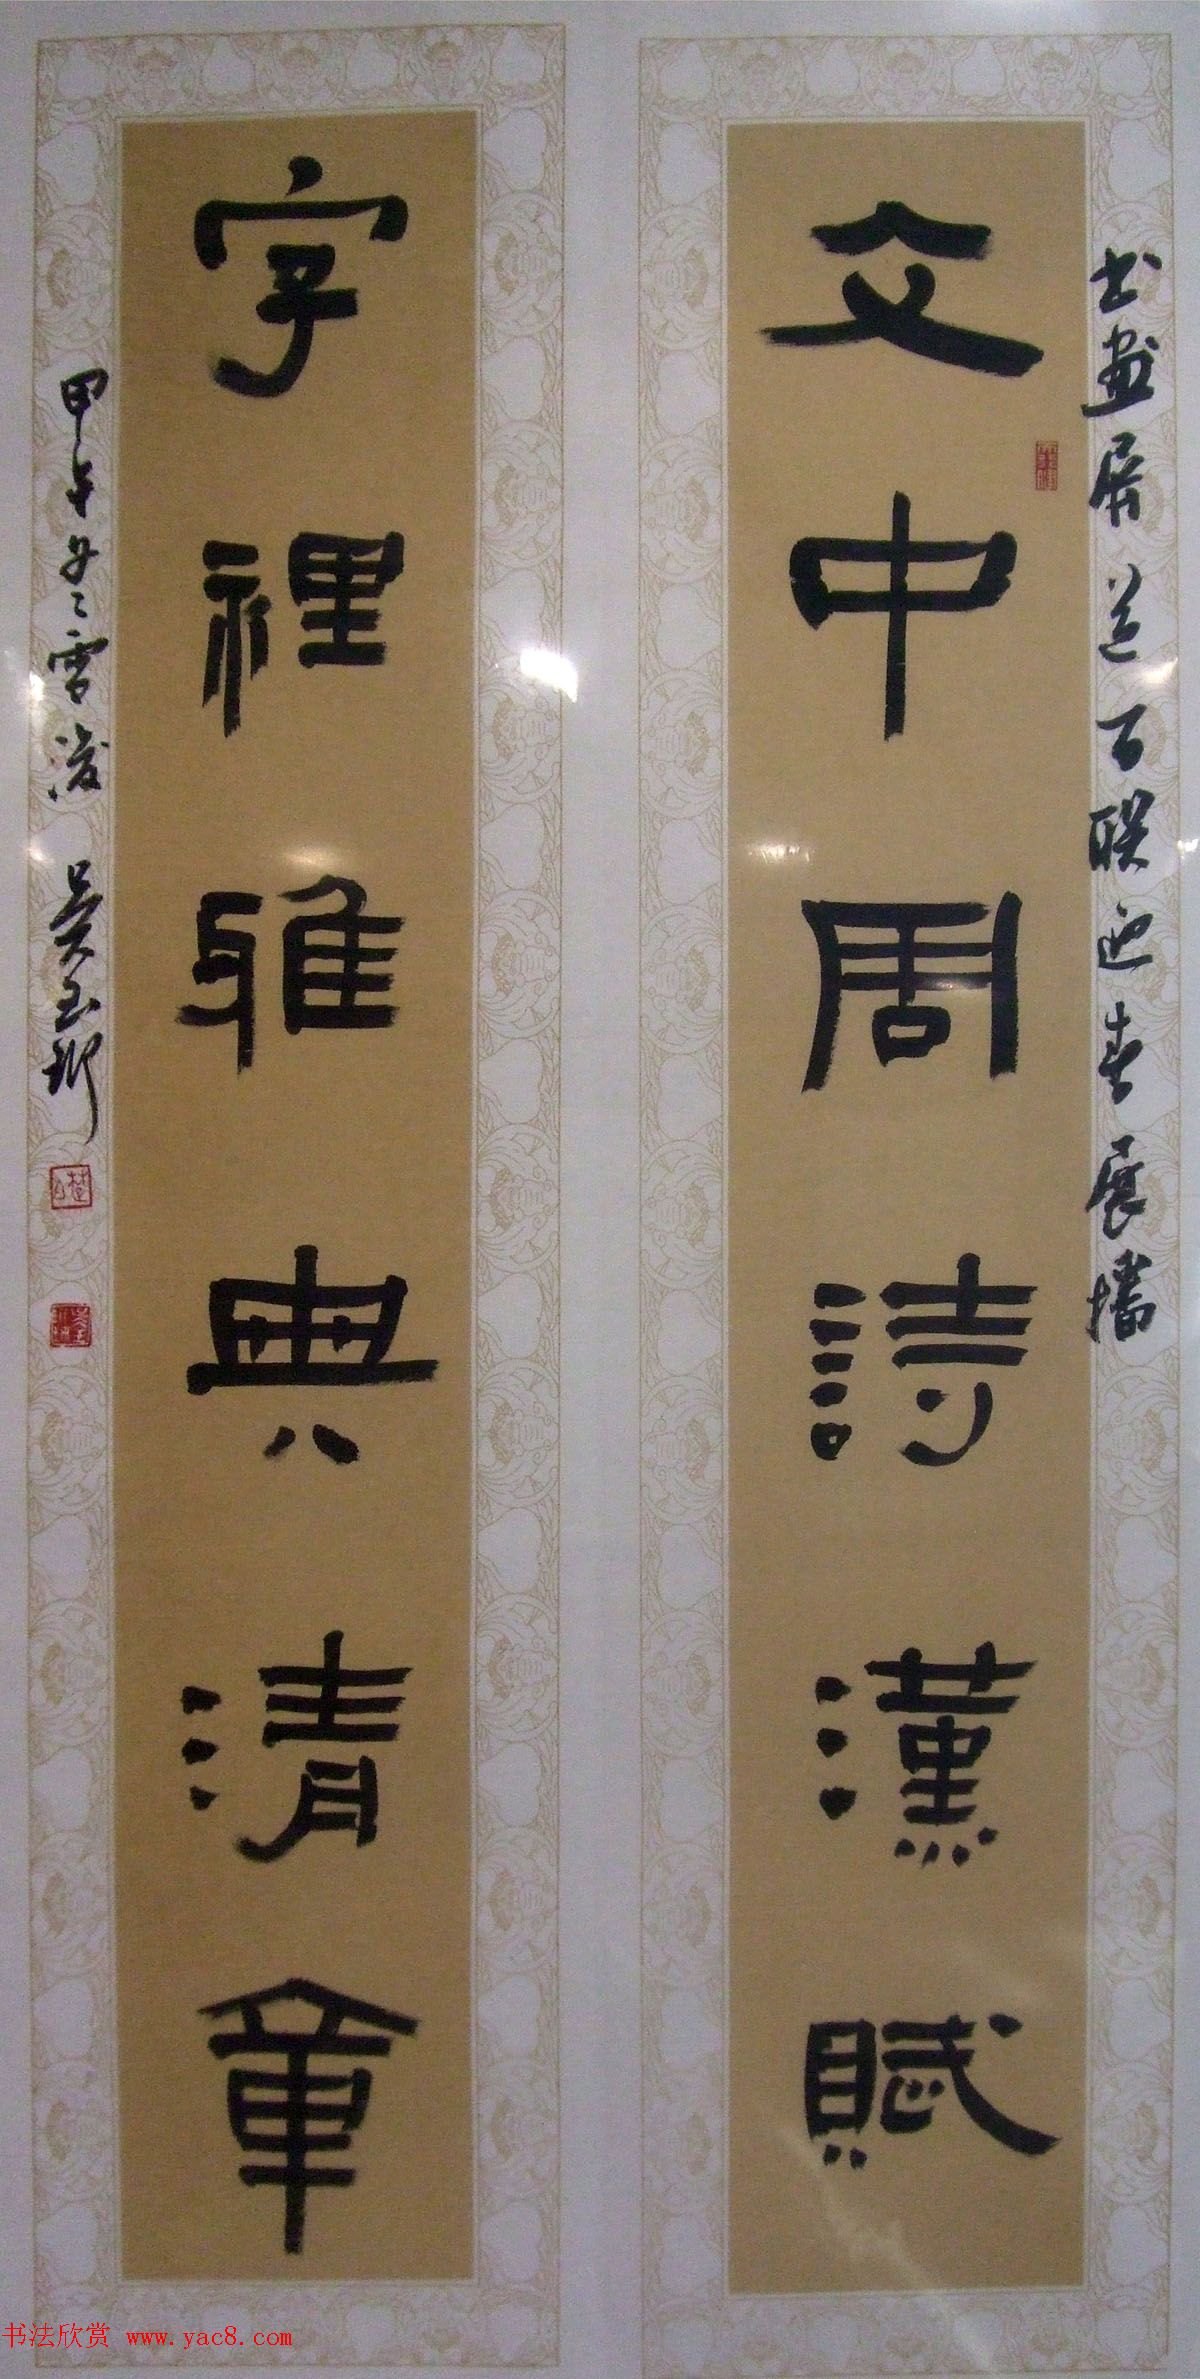 書畫屏道百聯迎春展播
文中周詩漢賦
字裡雅典清章
甲午冬之雪後 吴玉珩
书法欣赏 www.yac8.com